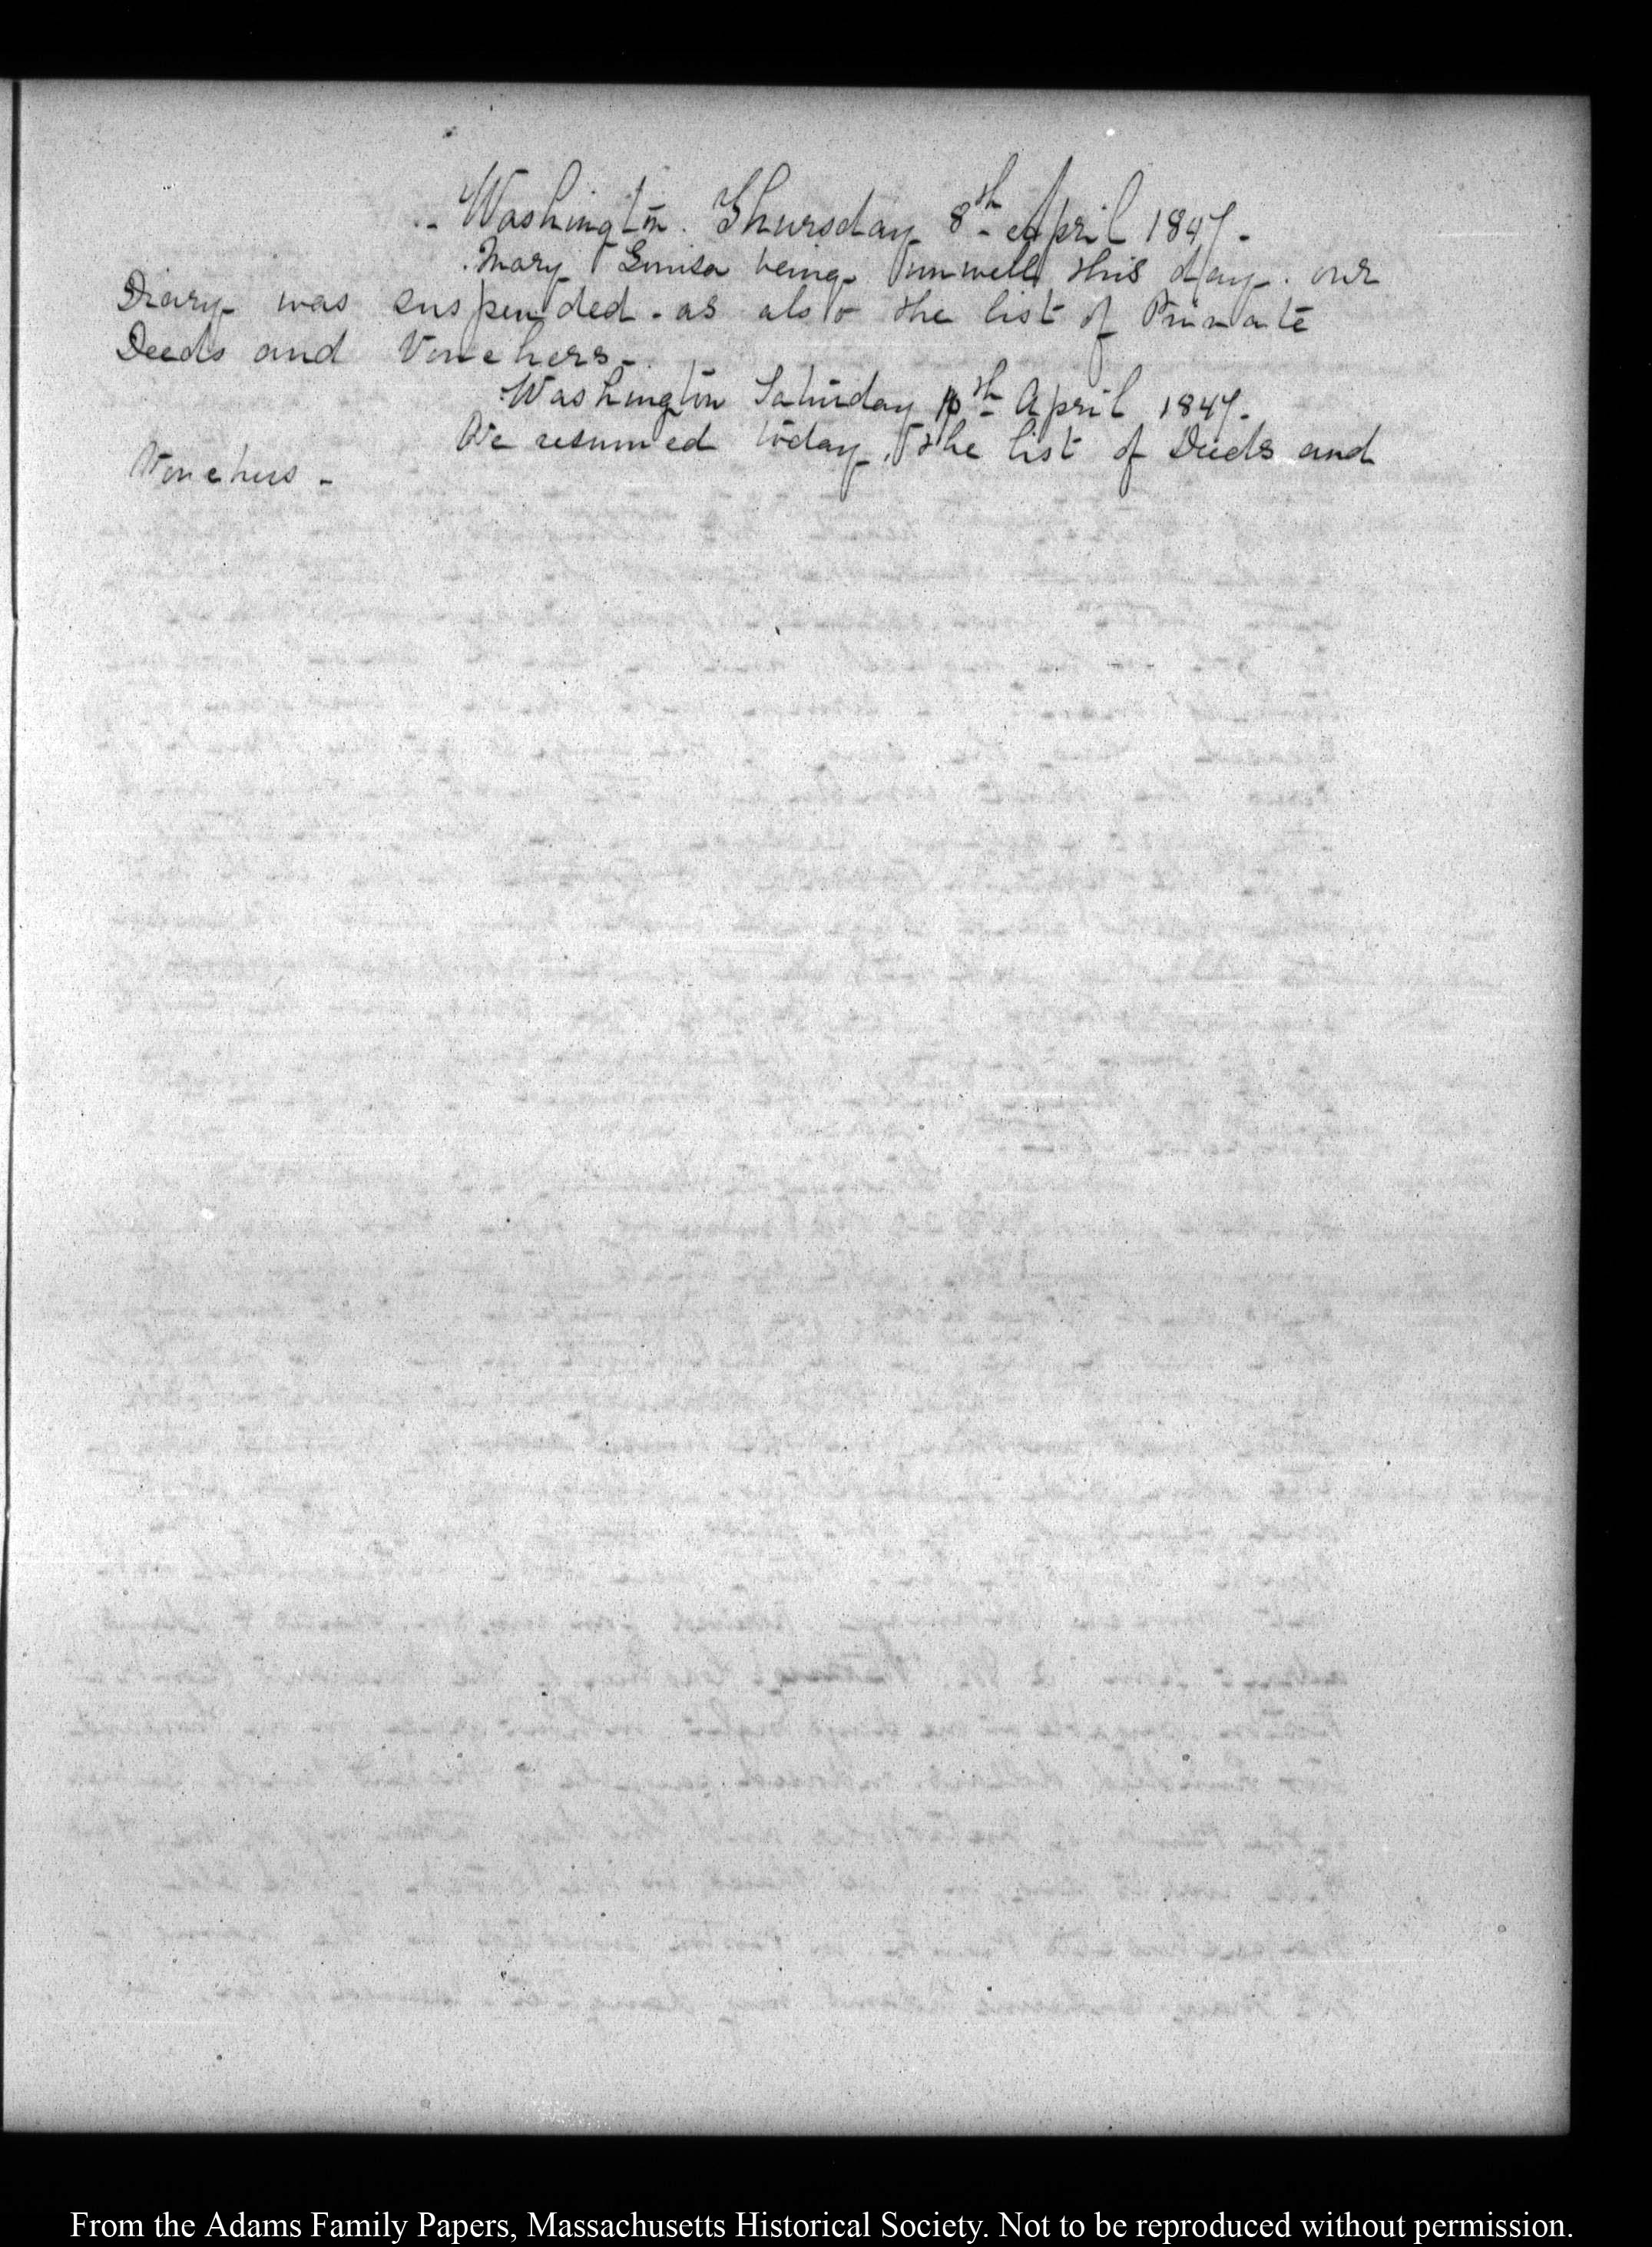 Washington. Thursday 8th April 1847.
Mary Louisa being unwell this day. our
Diary was suspended. as also the list of Private
Deeds and Vouchers.
Washington Saturday 10th April 1847.
We resumed today, the list of Deeds and
Vouchers.
From the Adams Family Papers, Massachusetts Historical Society. Not to be reproduced without permission.